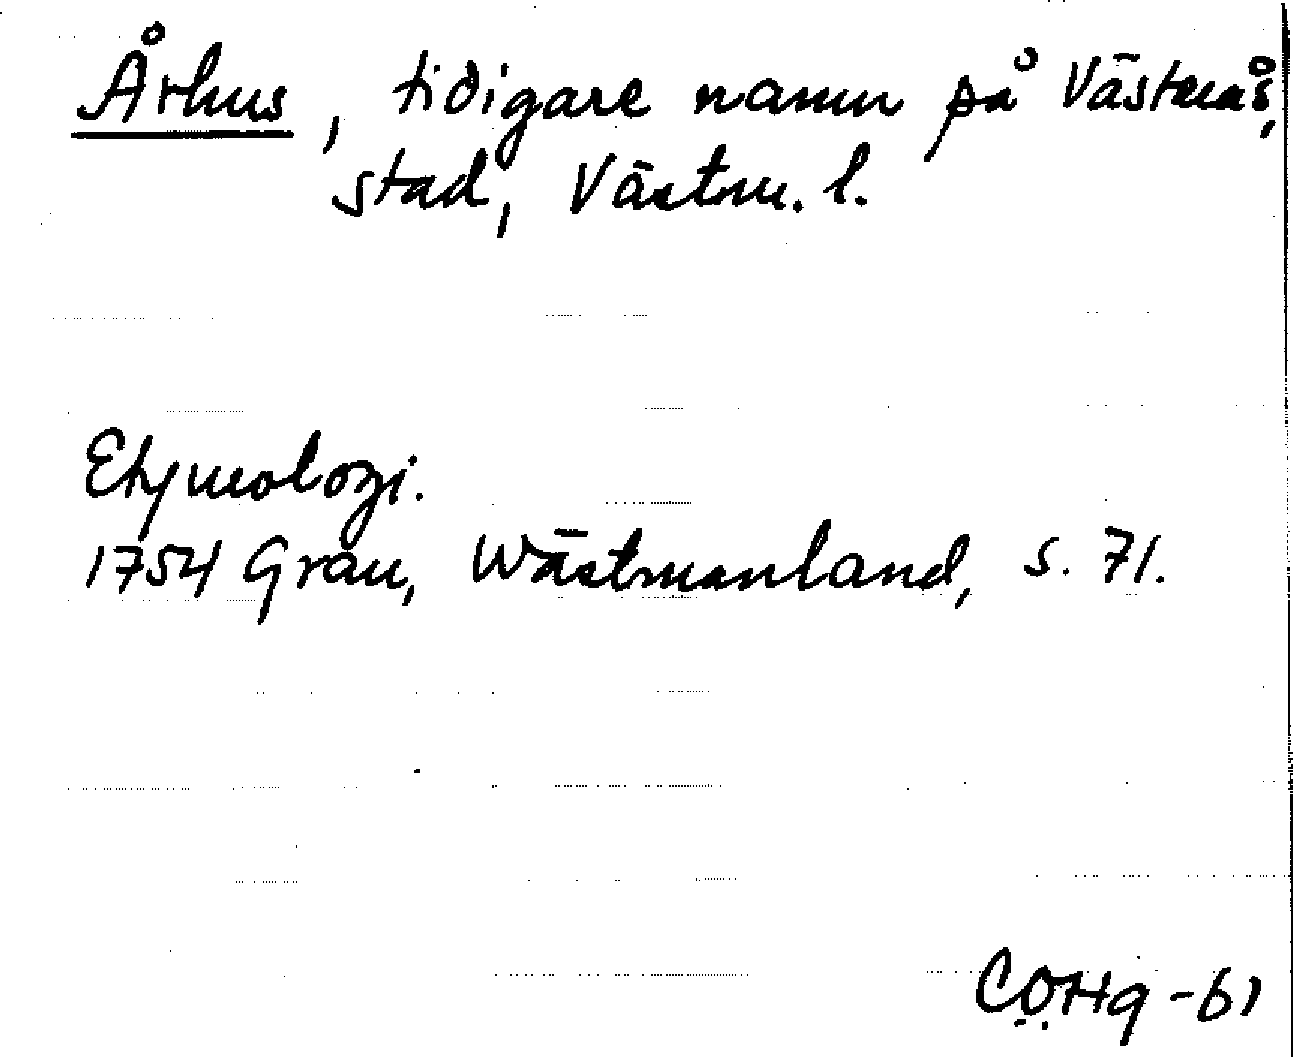 Århus, tidigare namn på Västerås,
stad, Västm. l.
Etymologi.
1754 Grau, Wästmanland, s. 71.
CÖHg -61